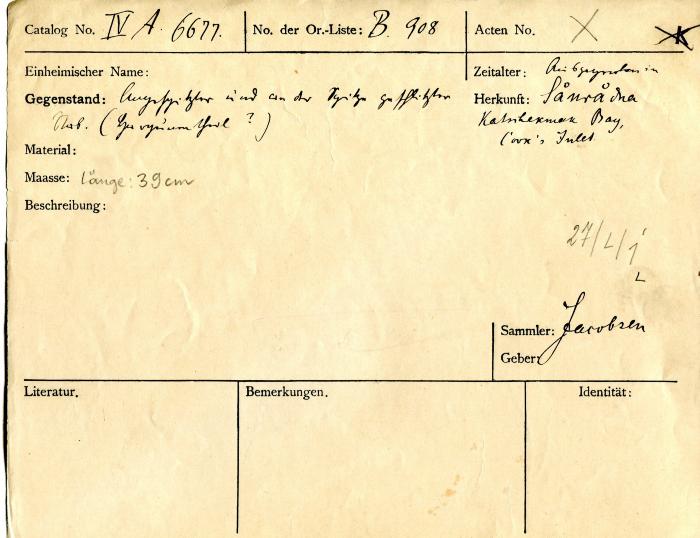 Catalog No. IV A. 6677. No. der Or.-Liste: B. 908 Acten No. X
Einheimischer Name:
Zeitalter: Ausgegraben in
Gegenstand: Angespitzter und an der Spitze geschlitzter
Stab. (Harpunentheil?)
Herkunft: Sånrådna
Katschekmak Bay,
Cook's Inlet
Material:
Maasse: länge: 39cm
Beschreibung:
27/L/1
L
Sammler: Jacobsen
Geber:
Literatur.
Bemerkungen.
Identität: